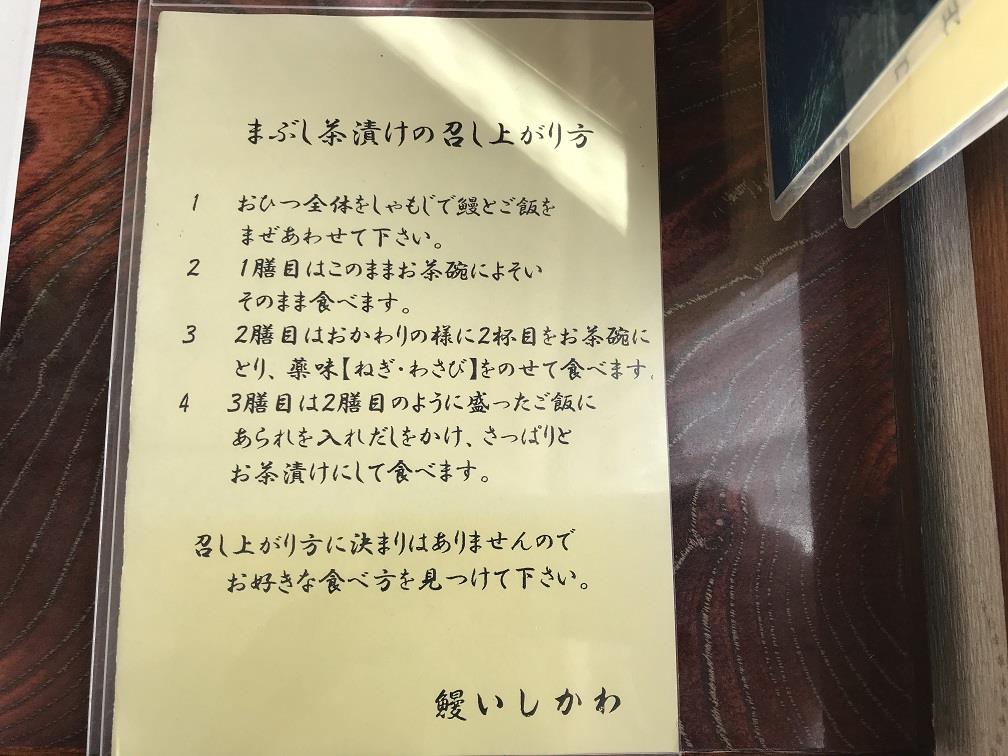 まぶし茶漬けの召し上がり方
1 おひつ全体をしゃもじで鰻とご飯を
まぜあわせて下さい。
2 1膳目はこのままお茶碗によそい
そのまま食べます。
3 2膳目はおかわりの様に2杯目をお茶碗に
とり、薬味【ねぎ・わさび】をのせて食べます。
4 3膳目は2膳目のように盛ったご飯に
あられを入れだしをかけ、さっぱりと
お茶漬けにして食べます。
召し上がり方に決まりはありませんので
お好きな食べ方を見つけて下さい。
鰻いしかわ